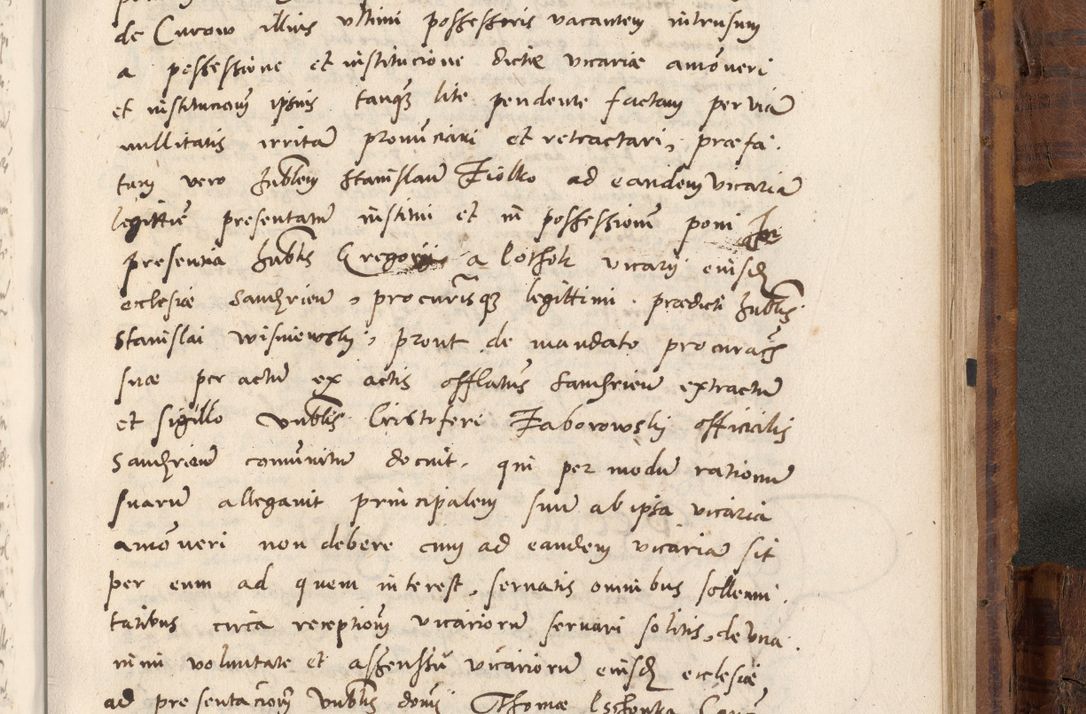 de Curow illius ultimi possessoris vacantem intrusum
a possessione et institucione dictæ vicariæ amoveri
et institucionem ipsius tanquam lite pendente factam per viciū
nullitatis irritā pronūciari et retractari, præfa.
tum vero hnblem Stanislaū Fiolko ad eandem vicariā
legittiē presentatū institui et in possessionē poni In
presentia hnblis Gregorij a lothok vicarij eiusd
ecclesiæ Sandzrieñ, procurisque legittimi. prædicti hnblis
Stanislai wisniewsky, prout de mandato procuratis
suæ per actū ex actis offlatus Sandzrieñ extractū
et sigillo Vnblis Cristoferi Zaborowsky officialis
Sandzrieñ comunitū docuit. qui per modū rationū
suarū allegavit principalem suū ab ipsa vicaria
amoveri non debere cum ad eandem vicariā sit
per eum ad quem interest, servatis omnibus sollenni.
tatibus circa receptionem vicariorū servari solitis, de una.
nimi voluntate et assenssu vicariorū eiusd ecclesiæ
ad presentacionem Vnblis domi Thomæ